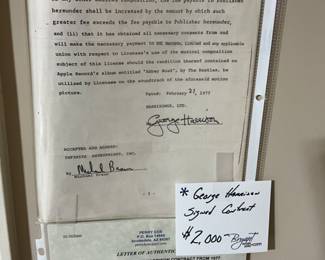 hereunder shall be increased by the amount by which such
greater fee exceeds the fee payable to Publisher hereunder,
and (ii) that it has obtained all necessary consents from and
will make the necessary payment to and any applicable
union with respect to Licensee's use of the musical composition
subject of this license should the condition thereof contained on
Apple Record's album entitled "Abbey Road", by The Beatles, be
utilized by Licensee on the soundtrack of the aforesaid motion
picture.
Dated: February 21, 1977
HARRISONGS, LTD.
George Harrison
ACCEPTED AND AGREED:
INFINITE ENTERPRISES, INC.
By Michael Braun
- 2 -
* George Harrison
Signed Contract
$2,000
PERRY COX
P.O. Box
Scottsdale, AZ
LETTER OF
CONTRACT FROM 1977